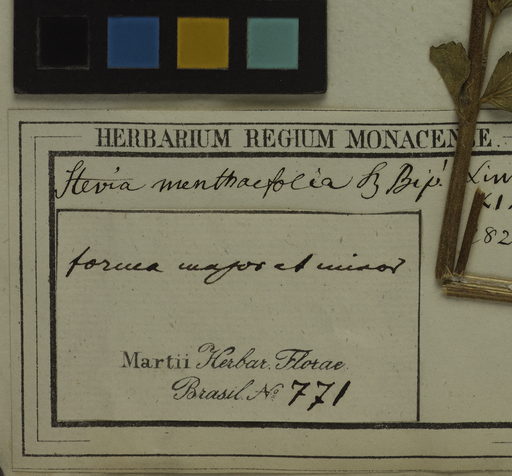 HERBARIUM REGIUM MONACENSE.
Stevia menthaefolia Sz Bip. Lin
821
82
forma major et minor
Martii Herbar. Florae
Brasil. No 771